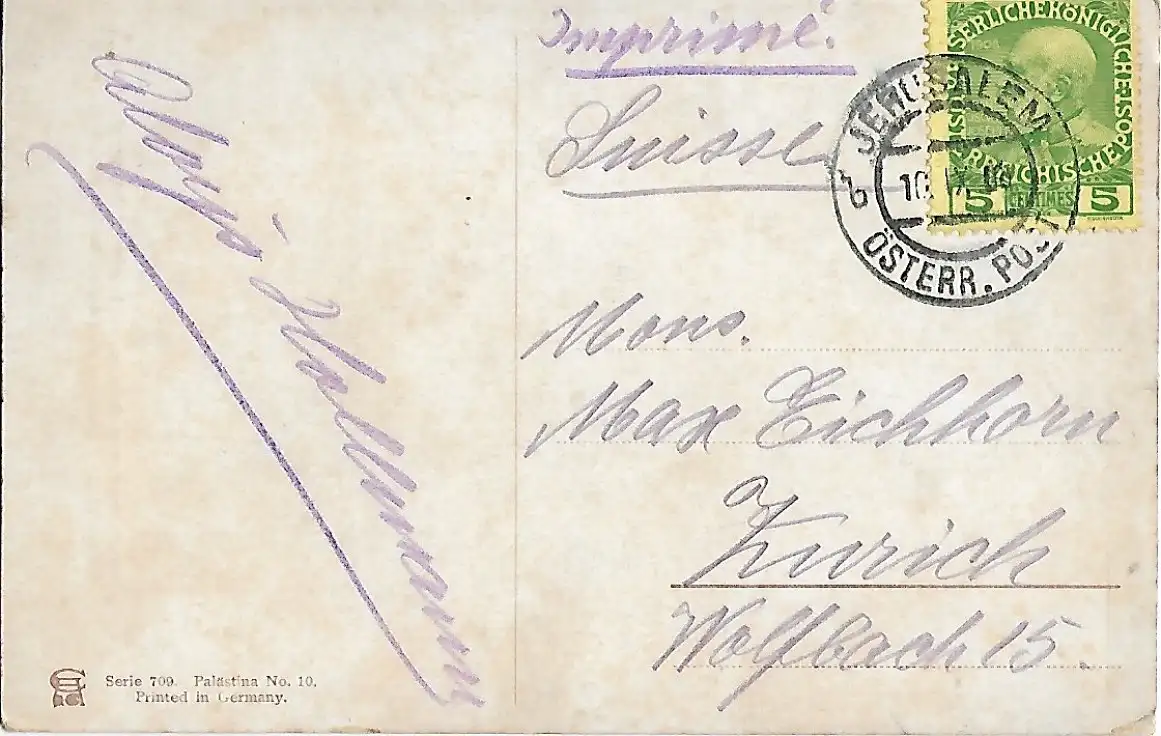 Imprimé.
Suisse
KAISERLICHE KÖNIGLICHE ÖSTERREICHISCHE POST
1908
5 CENTIMES 5
JERUSALEM
b 10
ÖSTERR. POST
Mons.
Max Eichhorn
Zurich
Wolfbach 15.
Serie 709. Palästina No. 10.
Printed in Germany.